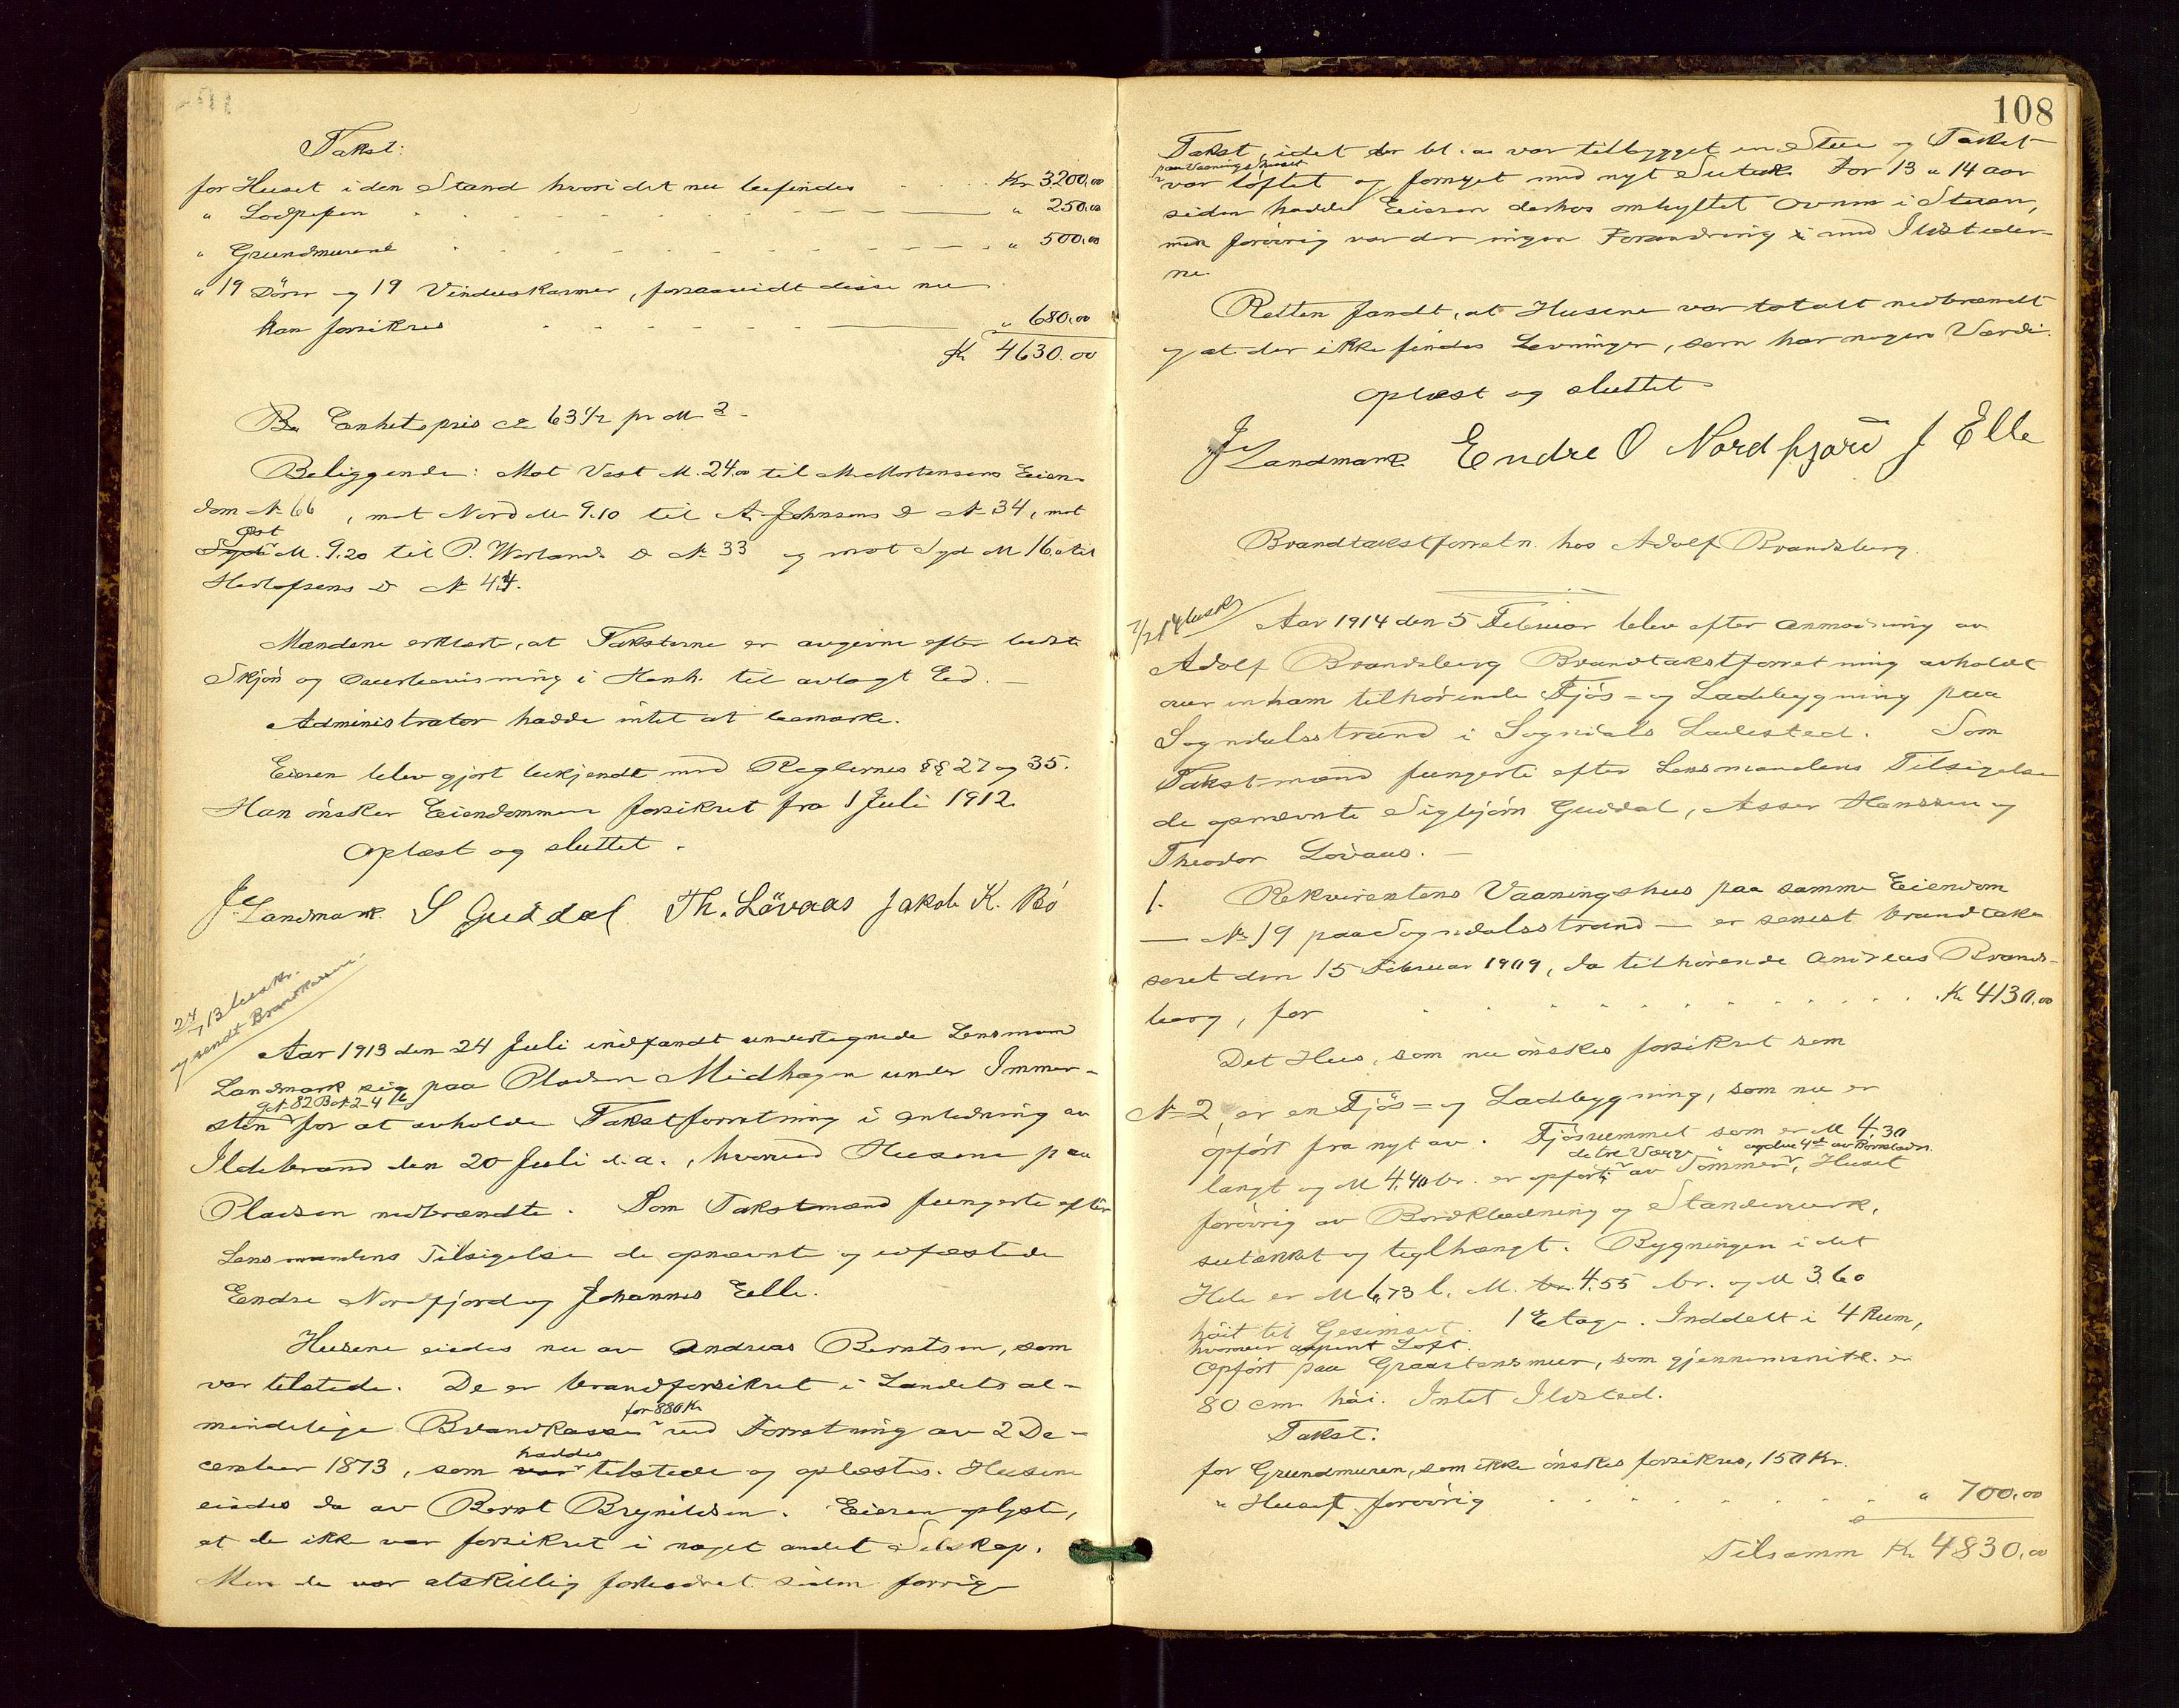 Takst:
for Huset i den Stand hvori det nu befindes . . . . Kr 3200,00
" Lodpipen . . . . " 250,00
" Grundmurene . . . . " 500,00
" 19 Dörer og 19 Vindueskarmer, forsaavidt disse nu
kan forsikres . . . . " 680,00
Kr 4630.00
Enhetspris ca 63 1/2 pr M 2
Beliggende: Mot Vest M. 24.00 til M. Mortensens Eien-
dom № 66, mot Nord M 9.10 til A. Johnsens D № 34, mot
Öst
Syd M. 9.20 til P. Worlands D № 33 og mot Syd M 16.0 til
Herlofsens D № 44.
Mændene erklærte, at Taksterne er avgivne efter bedste
Skjön og Overbevisning i Henh. til avlagt Ed. —
Administrator hadde intet at bemærke.
Eieren blev gjort bekjendt med Reglernes §§ 27 og 35.
Han önsker Eiendommen forsikret fra 1 Juli 1912.
Oplæst og sluttet.
J Landmark S Guddal Th. Lövaas Jakob K. Bö
24/7 13 beskr.
og sendt Brandkassen.
Aar 1913 den 24 Juli indfandt undertegnede Lensmand
Landmark sig paa Pladsen Midhagen under Immer-
G.№ 82 B.№ 2-4
sten for at avholde Takstforretning i Anledning av
Ildebrand den 20 Juli d.a., hvorved Husene paa
Pladsen nedbrændte. Som Takstmænd fungerte efter
Lensmandens Tilsigelse de opnævnte og edfæstede
Endre Nordfjord og Johannes Elle.
Husene eiedes nu av Andreas Berntsen, som
var tilstede. De er brandforsikret i Landets al-
for 880 Kr
mindelige Brandkasse ved Forretning av 2 De-
haddes
cember 1873, som var tilstede og oplæstes. Husene
eiedes da av Bernt Brynildsen. Eieren oplyste,
at de ikke var forsikret i noget andet Selskap.
Men de var atskillig forbedret siden forrige
108
Takst, idet der bl.a. var tilbygget en Stue og Taket
paa Vaaningshuset
var löftet og fornyet med nyt Sutak. For 13 a 14 aar
siden hadde Eieren derhos ombyttet Ovnen i Stuen,
men forövrig var der ingen Forandring i med Ildsteder-
ne.
Retten fandt, at Husene var totalt nedbrændt
og at der ikke findes Levninger, som har nogen Værdi.
Oplæst og sluttet
J Landmark Endre O Nordfjord J Elle
Brandtakstforretn. hos Adolf Brandsberg.
7/2 14 beskr
Aar 1914 den 5 Februar blev efter Anmodning av
Adolf Brandsberg Brandtakstforretning avholdt
over en ham tilhörende Fjös- og Ladebygning paa
Sogndalsstrand i Sogndals Ladested. Som
Takstmænd fungerte efter Lensmandens Tilsigelse
de opnævnte Sigbjörn Guddal, Asser Hanssen og
Theodor Lövaas. —
1. Rekvirentens Vaaningshus paa samme Eiendom
— № 19 paa Sogndalsstrand — er senest brandtak-
seret den 15 Februar 1909, da tilhörende Andreas Brands-
berg, for . . . . Kr 4130,00
Det Hus, som nu önskes forsikret som
№ 2, er en Fjös- og Ladebygning, som nu er
opfört fra nyt av. Fjösrummet som er M 4,30
de tre Vægge " og den 4de av Bindverk
langt og M 4,40 br. er opfört av Tömmer, Huset
forövrig av Bordklædning og Standerverk,
sutækket og teglhængt. Bygningen i det
Hele er M 6,73 l. M. br. 4.55 br. og M 3.60
höit til Gesimset. 1 Etage. Inddelt i 4 Rum,
hvorover aapent Loft.
Opfört paa Graastensmur, som gjennemsnitl. er
80 cm höi. Intet Ildsted.
Takst:
for Grundmuren, som ikke önskes forsikres, 150 Kr.
" Huset forövrig . . . . " 700,00
Tilsammn Kr 4830,00